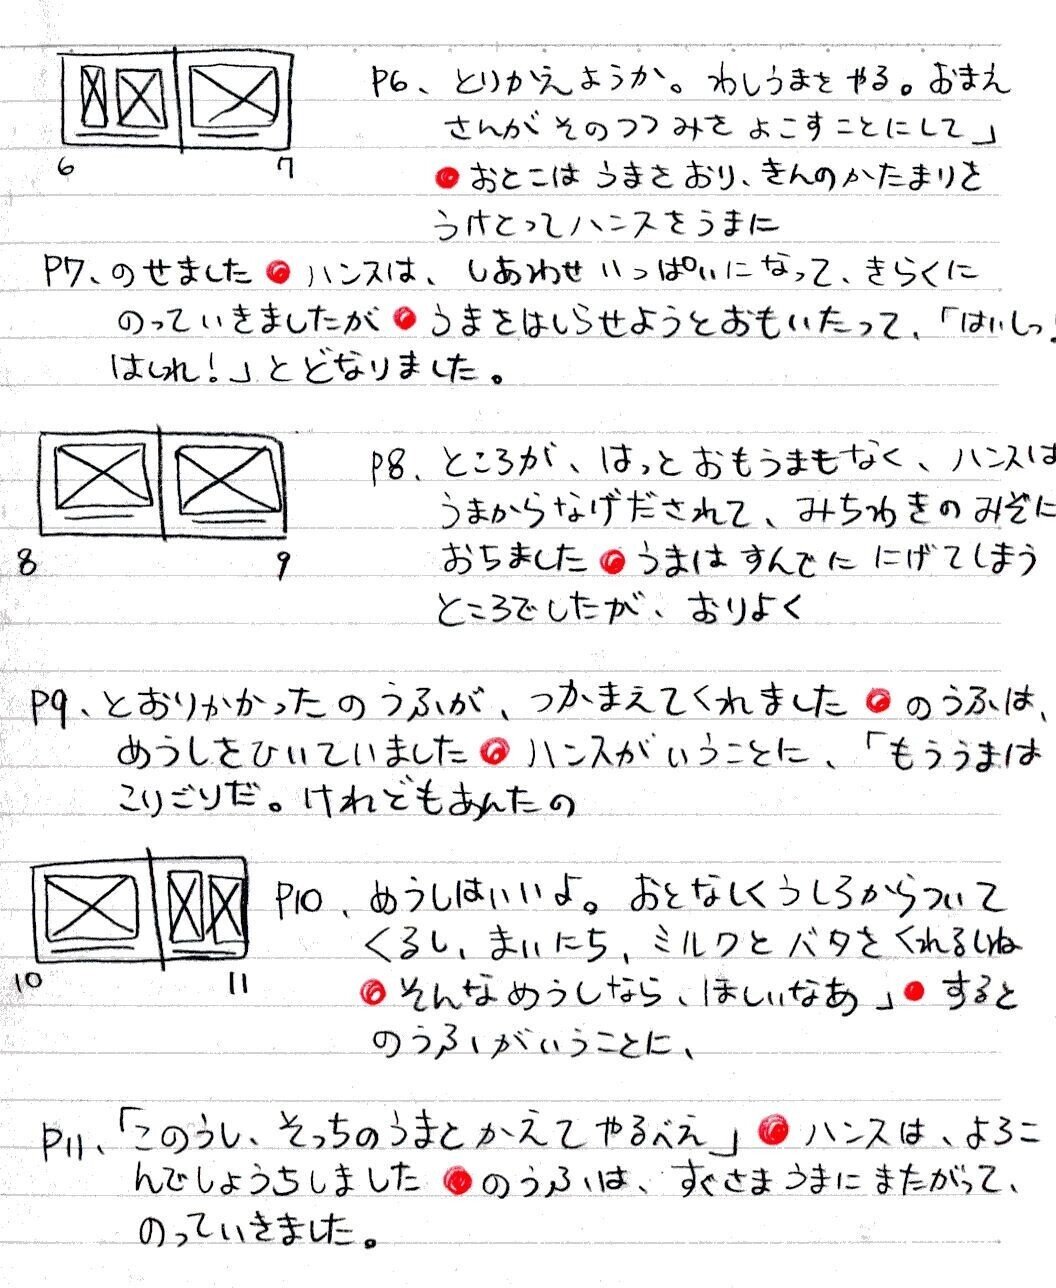 6 7
P6、とりかえようか。わしうまをやる。おまえ
さんがそのつつみをよこすことにして」
●おとこはうまをおり、きんのかたまりを
うけとってハンスをうまに
P7、のせました●ハンスは、しあわせいっぱいになって、きらくに
のっていきましたが●うまをはしらせようとおもいたって、「はいしっ!
はしれ!」とどなりました。
8 9
P8、ところが、はっとおもうまもなく、ハンスは
うまからなげだされて、みちわきのみぞに
おちました●うまはすんでににげてしまう
ところでしたが、おりよく
P9、とおりかかったのうふが、つかまえてくれました●のうふは、
めうしをひいていました●ハンスがいうことに、「もううまは
こりごりだ。けれどもあんたの
10 11
P10、めうしはいいよ。おとなしくうしろからついて
くるし、まいにち、ミルクとバタをくれるしね
●そんなめうしなら、ほしいなあ」●すると
のうふがいうことに、
P11、「このうし、そっちのうまとかえてやるべえ」●ハンスは、よろこ
んでしょうちしました●のうふは、すぐさまうまにまたがって、
のっていきました。